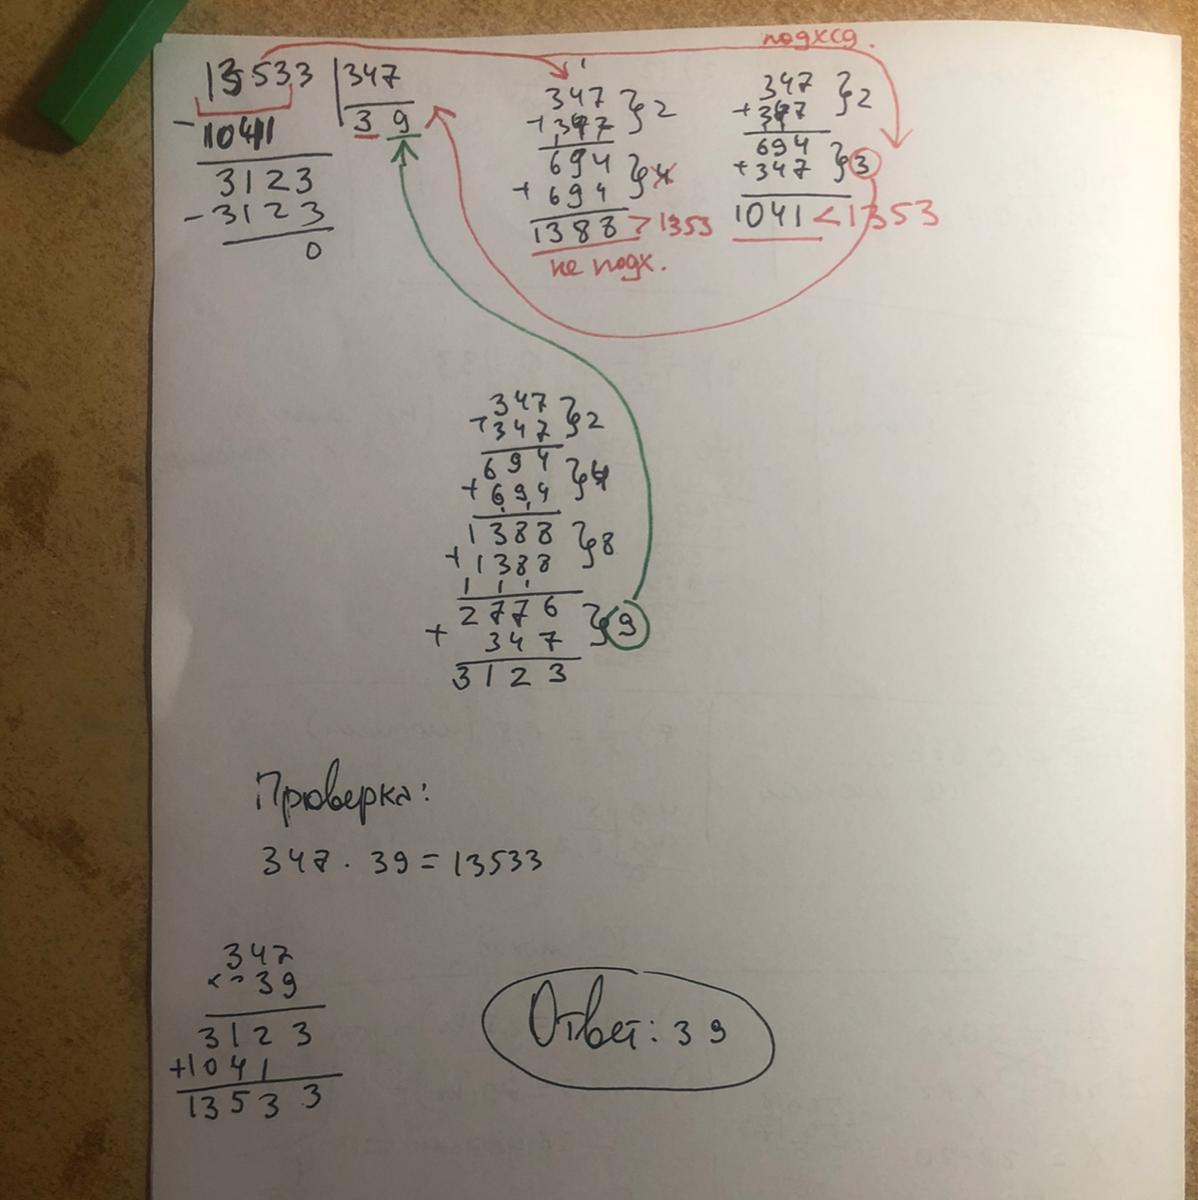 13533 | 347
39
- 1041
3123
- 3123
0
347 } 2
+ 347
694 } 4
+ 694
1388 > 1353
не подх.
подход.
347 } 2
+ 347
694 } 3
+ 347
1041 < 1353
347 } 2
+ 347
694 } 4
+ 694
1388 } 8
+ 1388
1 1 1
2776 } 9
+ 347
3123
Проверка:
347 · 39 = 13533
347
× 39
3123
+1041
13533
Ответ: 39